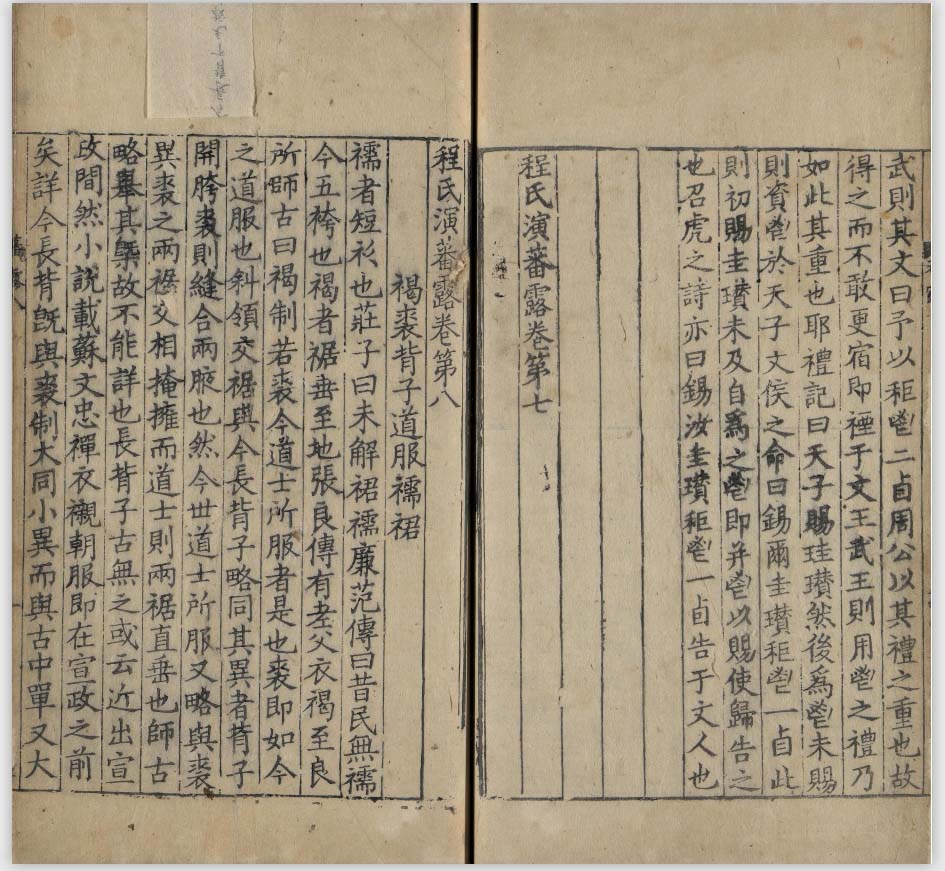 武則其文曰予以秬鬯二卣周公以其禮之重也故
得之而不敢更宿即禋于文王武王則用鬯之禮乃
如此其重也耶禮記曰天子賜珪瓚然後爲鬯未賜
則資鬯於天子文侯之命曰錫爾圭瓚秬鬯一卣此
則初賜圭瓚未及自爲之鬯即并鬯以賜使歸告之
也召虎之詩亦曰錫汝圭瓚秬鬯一卣告于文人也
程氏演蕃露卷第七
程氏演蕃露卷第八
褐裘背子道服襦裙
襦者短衫也莊子曰未解裙襦廉范傳曰昔民無襦
今五袴也褐者裾垂至地張良傳有老父衣褐至良
所師古曰褐制若裘今道士所服者是也裘即如今
之道服也斜領交裾與今長背子略同其異者背子
開胯裘則縫合兩腋也然今世道士所服又略與裘
異裘之兩裾交相掩擁而道士則兩裾直垂也師古
略舉其槩故不能詳也長背子古無之或云近出宣
政間然小說載蘇文忠禪衣襯朝服即在宣政之前
矣詳今長背旣與裘制大同小異而與古中單又大